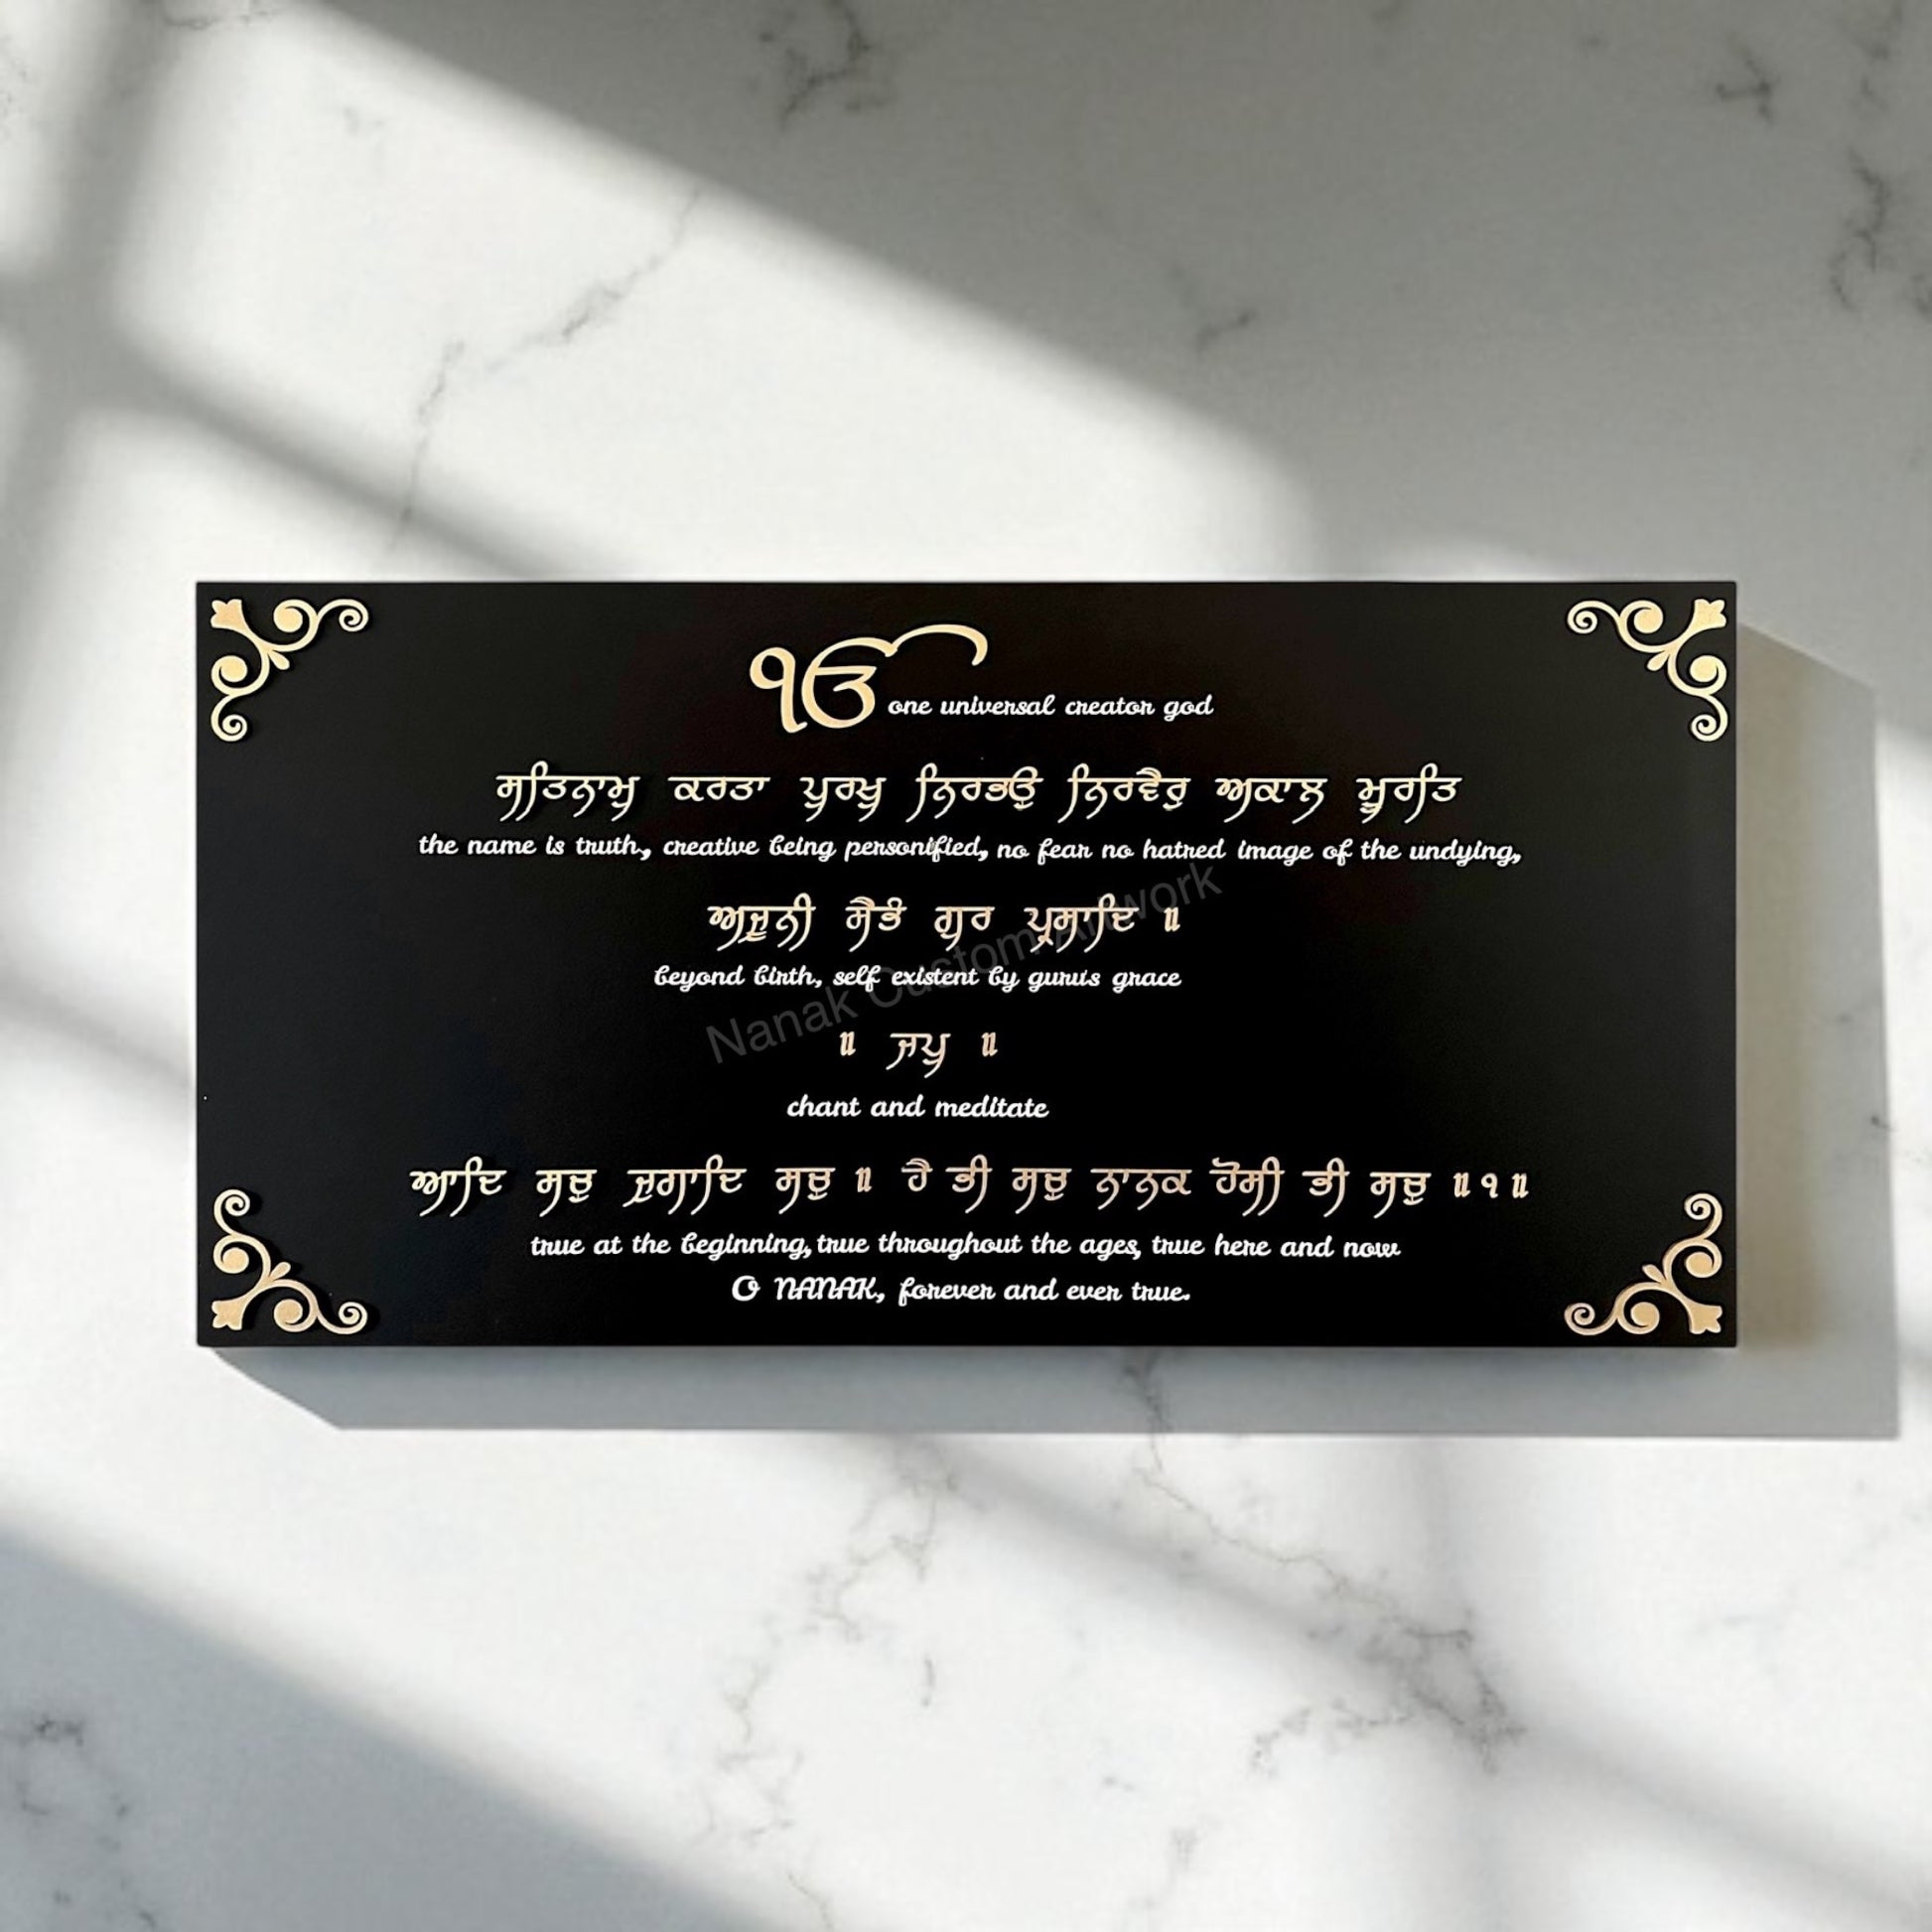 ੴ one universal creator god
ਸਤਿਨਾਮੁ ਕਰਤਾ ਪੁਰਖੁ ਨਿਰਭਉ ਨਿਰਵੈਰੁ ਅਕਾਲ ਮੂਰਤਿ
the name is truth, creative being personified, no fear no hatred image of the undying,
ਅਜੂਨੀ ਸੈਭੰ ਗੁਰ ਪ੍ਰਸਾਦਿ ॥
beyond birth, self existent by guru's grace
Nanak Custom Artwork
॥ ਜਪੁ ॥
chant and meditate
ਆਦਿ ਸਚੁ ਜੁਗਾਦਿ ਸਚੁ ॥ ਹੈ ਭੀ ਸਚੁ ਨਾਨਕ ਹੋਸੀ ਭੀ ਸਚੁ ॥੧॥
true at the beginning, true throughout the ages, true here and now
O NANAK, forever and ever true.